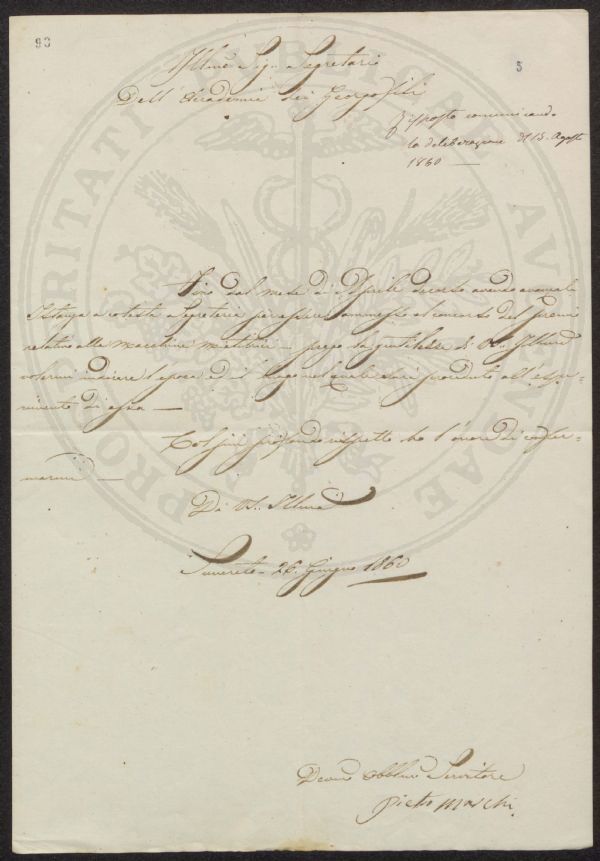 93
5
Illmo Sigr Segretario
Dell' Accademia dei Georgofili
Risposto comunicando
la deliberazione di 15. Agosto
1860
Sino dal mese di Aprile decorso avendo avanzata
Istanza a cotesta Segreteria per essere ammesso al concorso del Premio
relativo alle macchine mietitrici prego la gentilezza di V.S. Illma
volermi indicare l'epoca ed il luogo nel quale sarà proceduto all'espe-
rimento di essa
Col più profondo rispetto ho l'onore di confer-
marmi
Di V.S. Illma
Suvereto 26. Giugno 1860
Devmo Obblmo Servitore
Pietro Marchi
PROSPERITATI PUBLICAE AUGENDAE